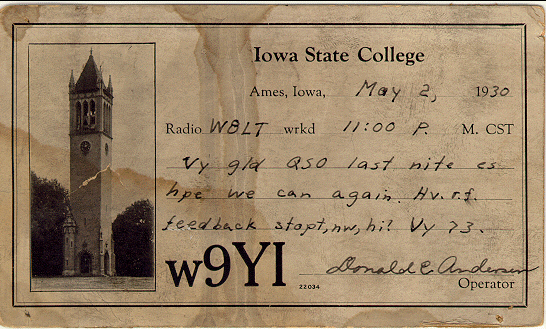 Iowa State College
Ames, Iowa, May 2, 1930
Radio W8LT wrkd 11:00 P. M. CST
Vy gld QSO last nite es
hpe we can again. Hv. r.f.
feedback stopt, nw, hi! Vy 73.
w9YI
Donald C. Anderson
22034
Operator